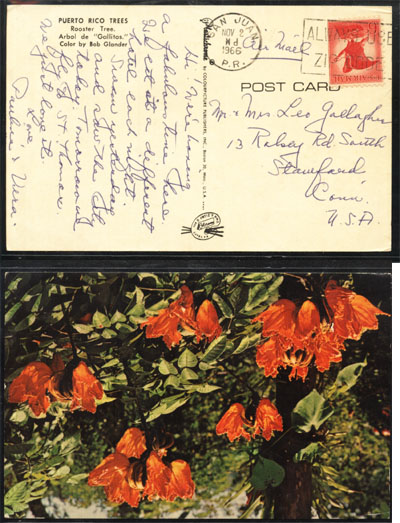 PUERTO RICO TREES
Rooster Tree.
Arbol de "Gallitos."
Color by Bob Glander
Hi, We're having
a fabulous time here.
We eat at a different
hotel each night.
Sun yesterday
and saw the
today. Tomorrow we
fly to St Thomas.
We just love it.
Love
Pauline & Vera.
by COLOURPICTURE PUBLISHERS, INC., Boston 30, Mass., U.S.A.
SAN JUAN
NOV 2
PM
1966
P.R.
Air Mail
ALWAYS USE
ZI
8c
U.S. AIR MAIL
POST CARD
Mr & Mrs Leo Gallagher
13 Ralsey Rd South
Stamford
Conn.
U.S.A.